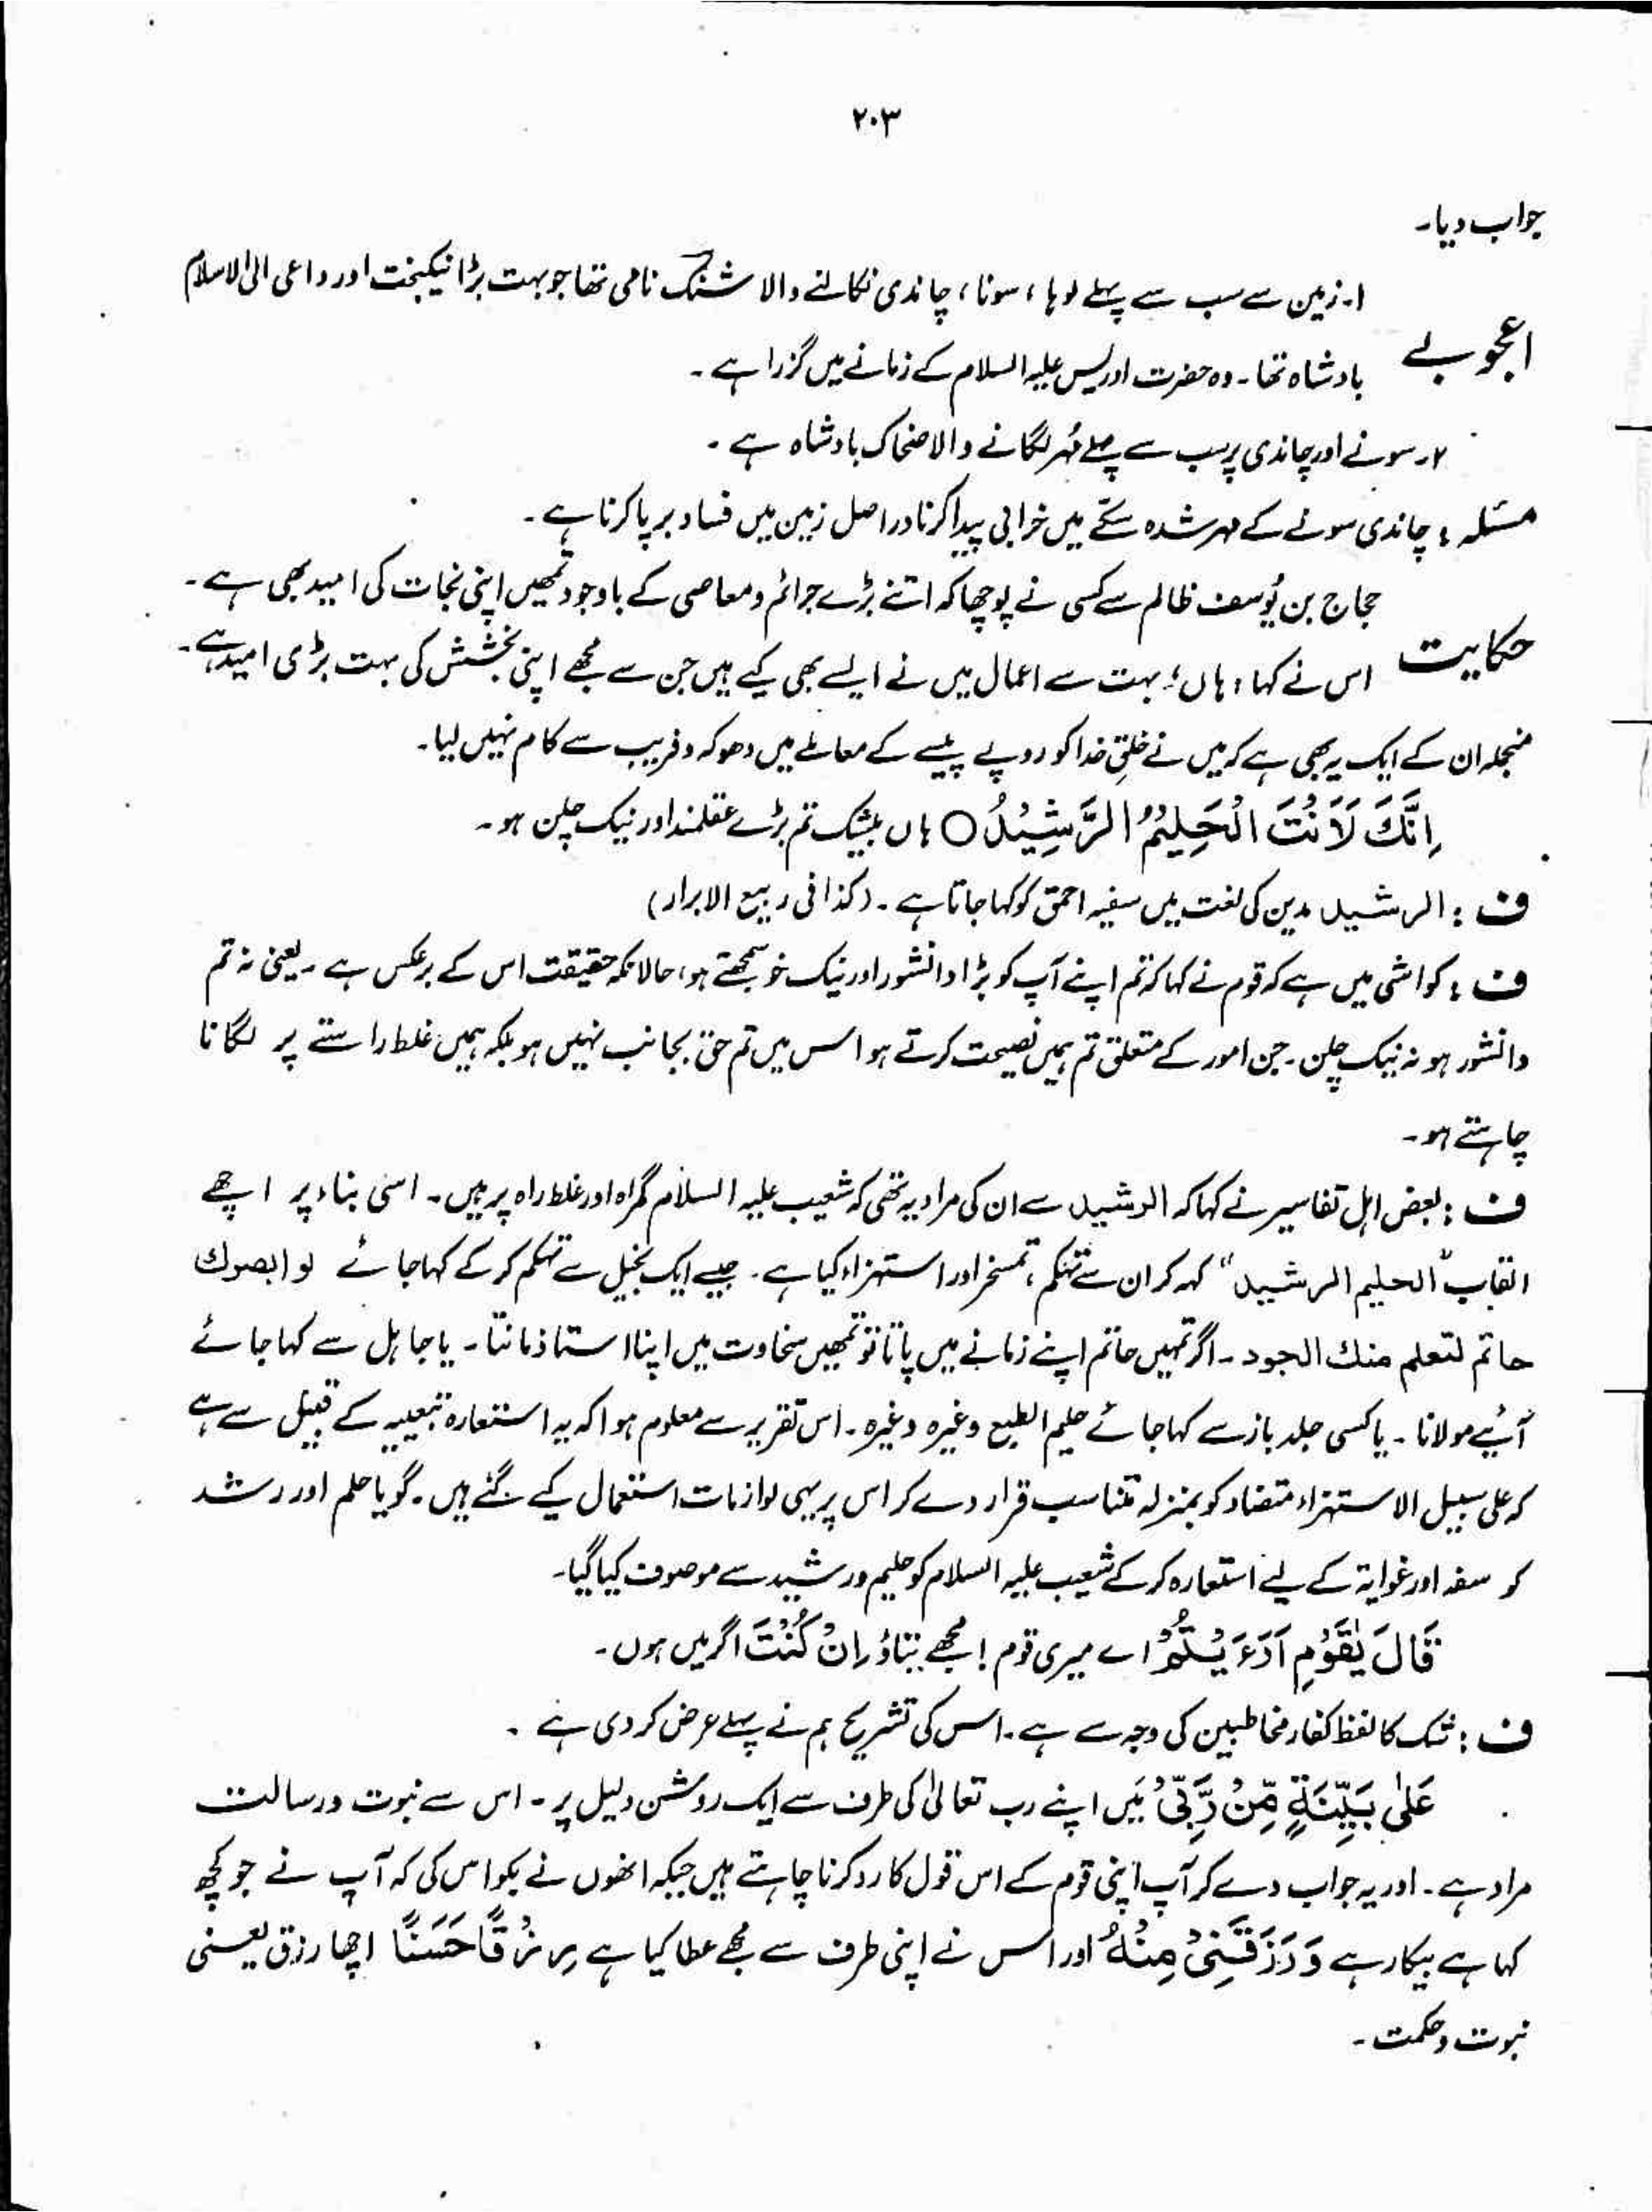 ۲۰۳
جواب دیا۔
۱۔ زمین سے سب سے پہلے لوہا، سونا، چاندی نکالنے والا شنگ نامی تھا جو بہت بڑا نیکبخت اور داعی الی الاسلام
اعجوبے بادشاہ تھا۔ وہ حضرت ادریس علیہ السلام کے زمانے میں گزرا ہے۔
۲۔ سونے اور چاندی پر سب سے پہلے مُہر لگانے والا ضحاک بادشاہ ہے۔
مسئلہ: چاندی سونے کے مہر شدہ سکّے میں خرابی پیدا کرنا دراصل زمین میں فساد برپا کرنا ہے۔
حجاج بن یُوسف ظالم سے کسی نے پوچھا کہ اتنے بڑے جرائم و معاصی کے باوجود تمھیں اپنی نجات کی امید بھی ہے۔
حکایت اس نے کہا، ہاں! بہت سے اعمال میں نے ایسے بھی کیے ہیں جن سے مجھے اپنی بخشش کی بہت بڑی امید ہے۔
منجملہ ان کے ایک یہ بھی ہے کہ میں نے خلقِ خدا کو روپے پیسے کے معاملے میں دھوکہ و فریب سے کام نہیں لیا۔
اِنَّكَ لَاَنْتَ الْحَلِيْمُ الرَّشِيْدُ ○ ہاں بیشک تم بڑے عقلمند اور نیک چلن ہو۔
ف: الرشید مدین کی لغت میں سفیہ احمق کو کہا جاتا ہے۔ (کذا فی ربیع الابرار)
ف: کواشی میں ہے کہ قوم نے کہا کہ تم اپنے آپ کو بڑا دانشور اور نیک خو سمجھتے ہو، حالانکہ حقیقت اس کے برعکس ہے۔ یعنی نہ تم
دانشور ہو نہ نیک چلن۔ جن امور کے متعلق تم ہمیں نصیحت کرتے ہو اس میں تم حق بجانب نہیں ہو بلکہ ہمیں غلط راستے پر لگانا
چاہتے ہو۔
ف: بعض اہل تفاسیر نے کہا کہ الرشید سے ان کی مراد یہ تھی کہ شعیب علیہ السلام گمراہ اور غلط راہ پر ہیں۔ اسی بناء پر اچھے
القاب "الحلیم الرشید" کہہ کر ان سے تہکم، تمسخر اور استہزاء کیا ہے۔ جیسے ایک بخیل سے تہکم کر کے کہا جائے لو ابصرك
حاتم لتعلم منك الجود۔ اگر تمہیں حاتم اپنے زمانے میں پاتا تو تمھیں سخاوت میں اپنا استاذ مانتا۔ یا جاہل سے کہا جائے
آئیے مولانا۔ یا کسی جلد باز سے کہا جائے حلیم الطبع وغیرہ وغیرہ۔ اس تقریر سے معلوم ہوا کہ یہ استعارہ تبعیہ کے قبیل سے ہے
کہ علی سبیل الاستہزاء متضاد کو بمنزلہ تناسب قرار دے کر اس پر یہی لوازمات استعمال کیے گئے ہیں۔ گویا حلم اور رشد
کو سفہ اور غوایۃ کے لیے استعارہ کر کے شعیب علیہ السلام کو حلیم و رشید سے موصوف کیا گیا۔
قَالَ یٰقَوْمِ اَرَءَیْتُمْ اے میری قوم! مجھے بتاؤ اِنْ كُنْتُ اگر میں ہوں۔
ف: شک کا لفظ کفار مخاطبین کی وجہ سے ہے۔ اس کی تشریح ہم نے پہلے عرض کر دی ہے۔
عَلٰی بَیِّنَةٍ مِّنْ رَّبِّیْ میں اپنے رب تعالیٰ کی طرف سے ایک روشن دلیل پر۔ اس سے نبوت و رسالت
مراد ہے۔ اور یہ جواب دے کر آپ اپنی قوم کے اس قول کا رد کرنا چاہتے ہیں جبکہ انھوں نے بکواس کی کہ آپ نے جو کچھ
کہا ہے بیکار ہے وَرَزَقَنِیْ مِنْهُ اور اس نے اپنی طرف سے مجھے عطا کیا ہے رِزْقًا حَسَنًا اچھا رزق یعنی
نبوت و حکمت۔